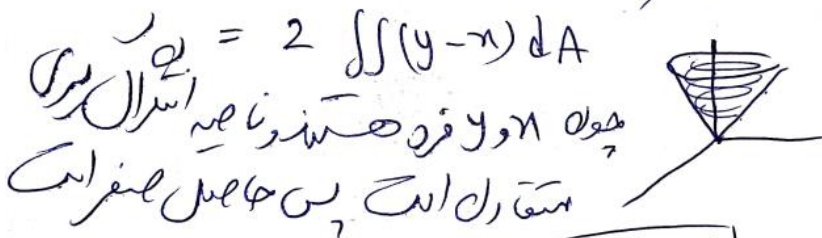 = 2 ∬(y-x) dA
چون x و y فرد هستند و ناحیه انتگرال گیری
متقارن است پس حاصل صفر است